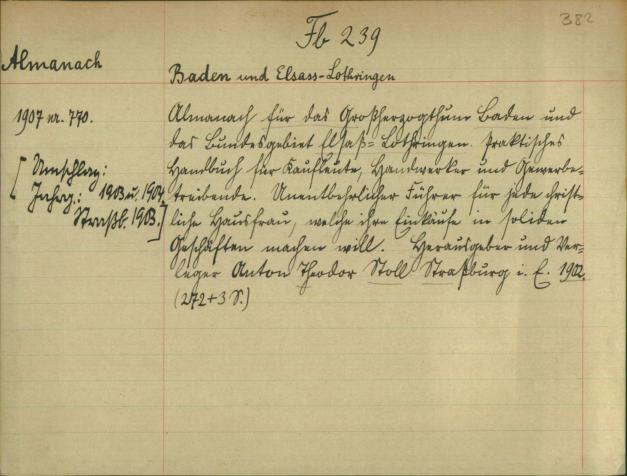 382
Fb 239
Almanach
Baden und Elsass-Lothringen
1907 nr. 770.
[Umschlag:
Jahrg.: 1903 u. 1904
Straßb. 1903.]
Almanach für das Großherzogthum Baden und
das Bundesgebiet Elsaß=Lothringen. Praktisches
Handbuch für Kaufleute, Handwerker und Gewerbe=
treibende. Unentbehrlicher Führer für jede christ=
liche Hausfrau, welche ihre Einkäufe in soliden
Geschäften machen will. Herausgeber und Ver=
leger Anton Theodor Stoll Straßburg i. E. 1902.
(272+3 S.)